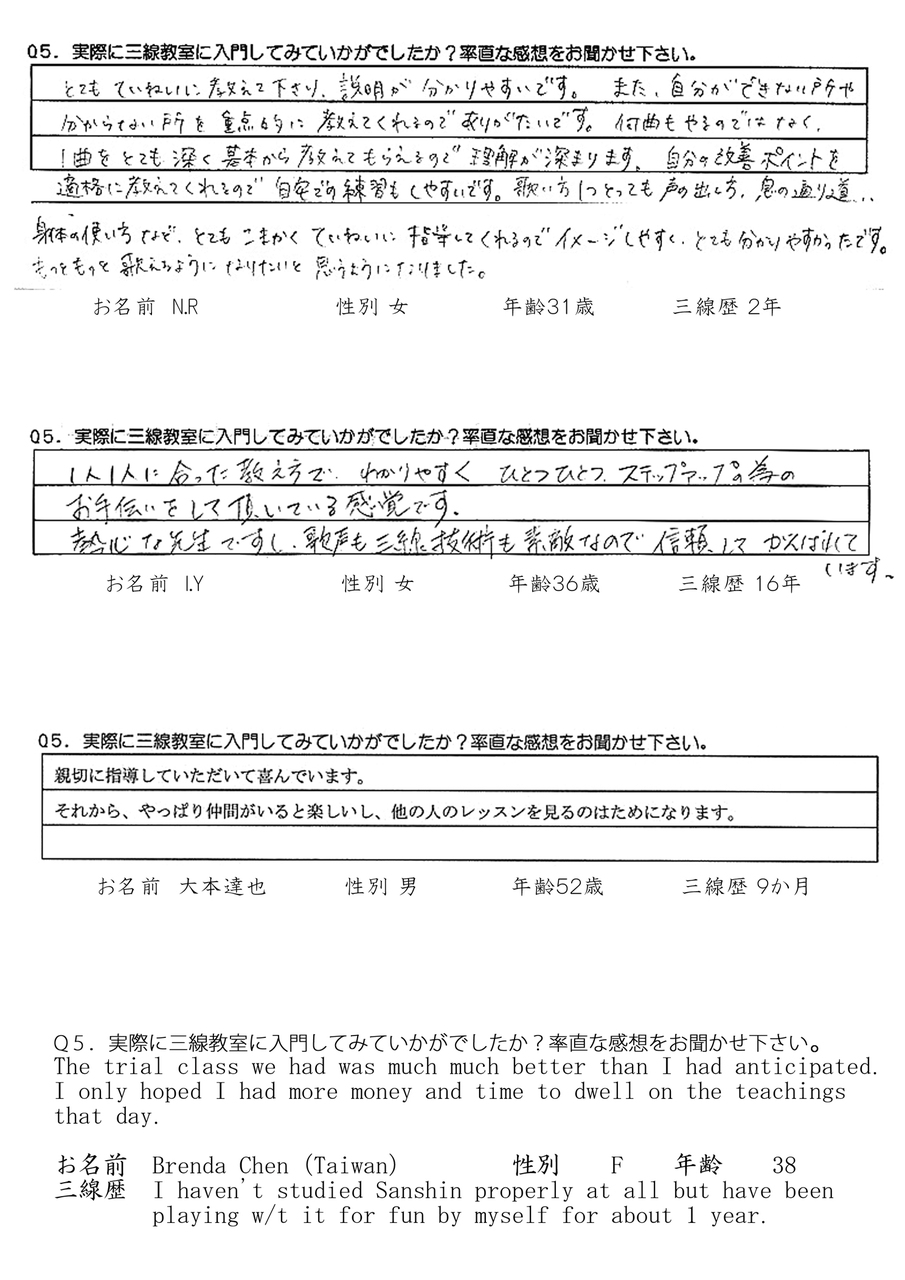 Q5．実際に三線教室に入門してみていかがでしたか？率直な感想をお聞かせ下さい。
とても ていねいに 教えて下さり、説明が 分かりやすいです。 また、自分ができない所や
分からない所を 重点的に 教えてくれるので ありがたいです。 何曲もやるのではなく、
1曲をとても 深く 基本から 教えてもらえるので 理解が深まります、 自分の改善ポイントを
適格に教えてくれるので 自宅での練習もしやすいです。歌い方1つとっても 声の出し方、息の通り道…
身体の使い方など、とても こまかく ていねいに 指導してくれるので イメージしやすく、とても分かりやすかったです。
もっともっと 歌えるように なりたいと 思うようになりました。
お名前 N.R 性別 女 年齢31歳 三線歴 2年
Q5．実際に三線教室に入門してみていかがでしたか？率直な感想をお聞かせ下さい。
1人1人に 合った 教え方で、わかりやすく ひとつひとつ、ステップアップの為の
お手伝いをして頂いている感覚です。
熱心な先生ですし、歌声も三線技術も素敵なので 信頼して がんばれて
います。
お名前 I.Y 性別 女 年齢36歳 三線歴 16年
Q5．実際に三線教室に入門してみていかがでしたか？率直な感想をお聞かせ下さい。
親切に指導していただいて喜んでいます。
それから、やっぱり仲間がいると楽しいし、他の人のレッスンを見るのはためになります。
お名前 大本達也 性別 男 年齢52歳 三線歴 9か月
Ｑ５．実際に三線教室に入門してみていかがでしたか？率直な感想をお聞かせ下さい。
The trial class we had was much much better than I had anticipated.
I only hoped I had more money and time to dwell on the teachings
that day.
お名前 Brenda Chen (Taiwan) 性別 F 年齢 38
三線歴 I haven't studied Sanshin properly at all but have been
playing w/t it for fun by myself for about 1 year.